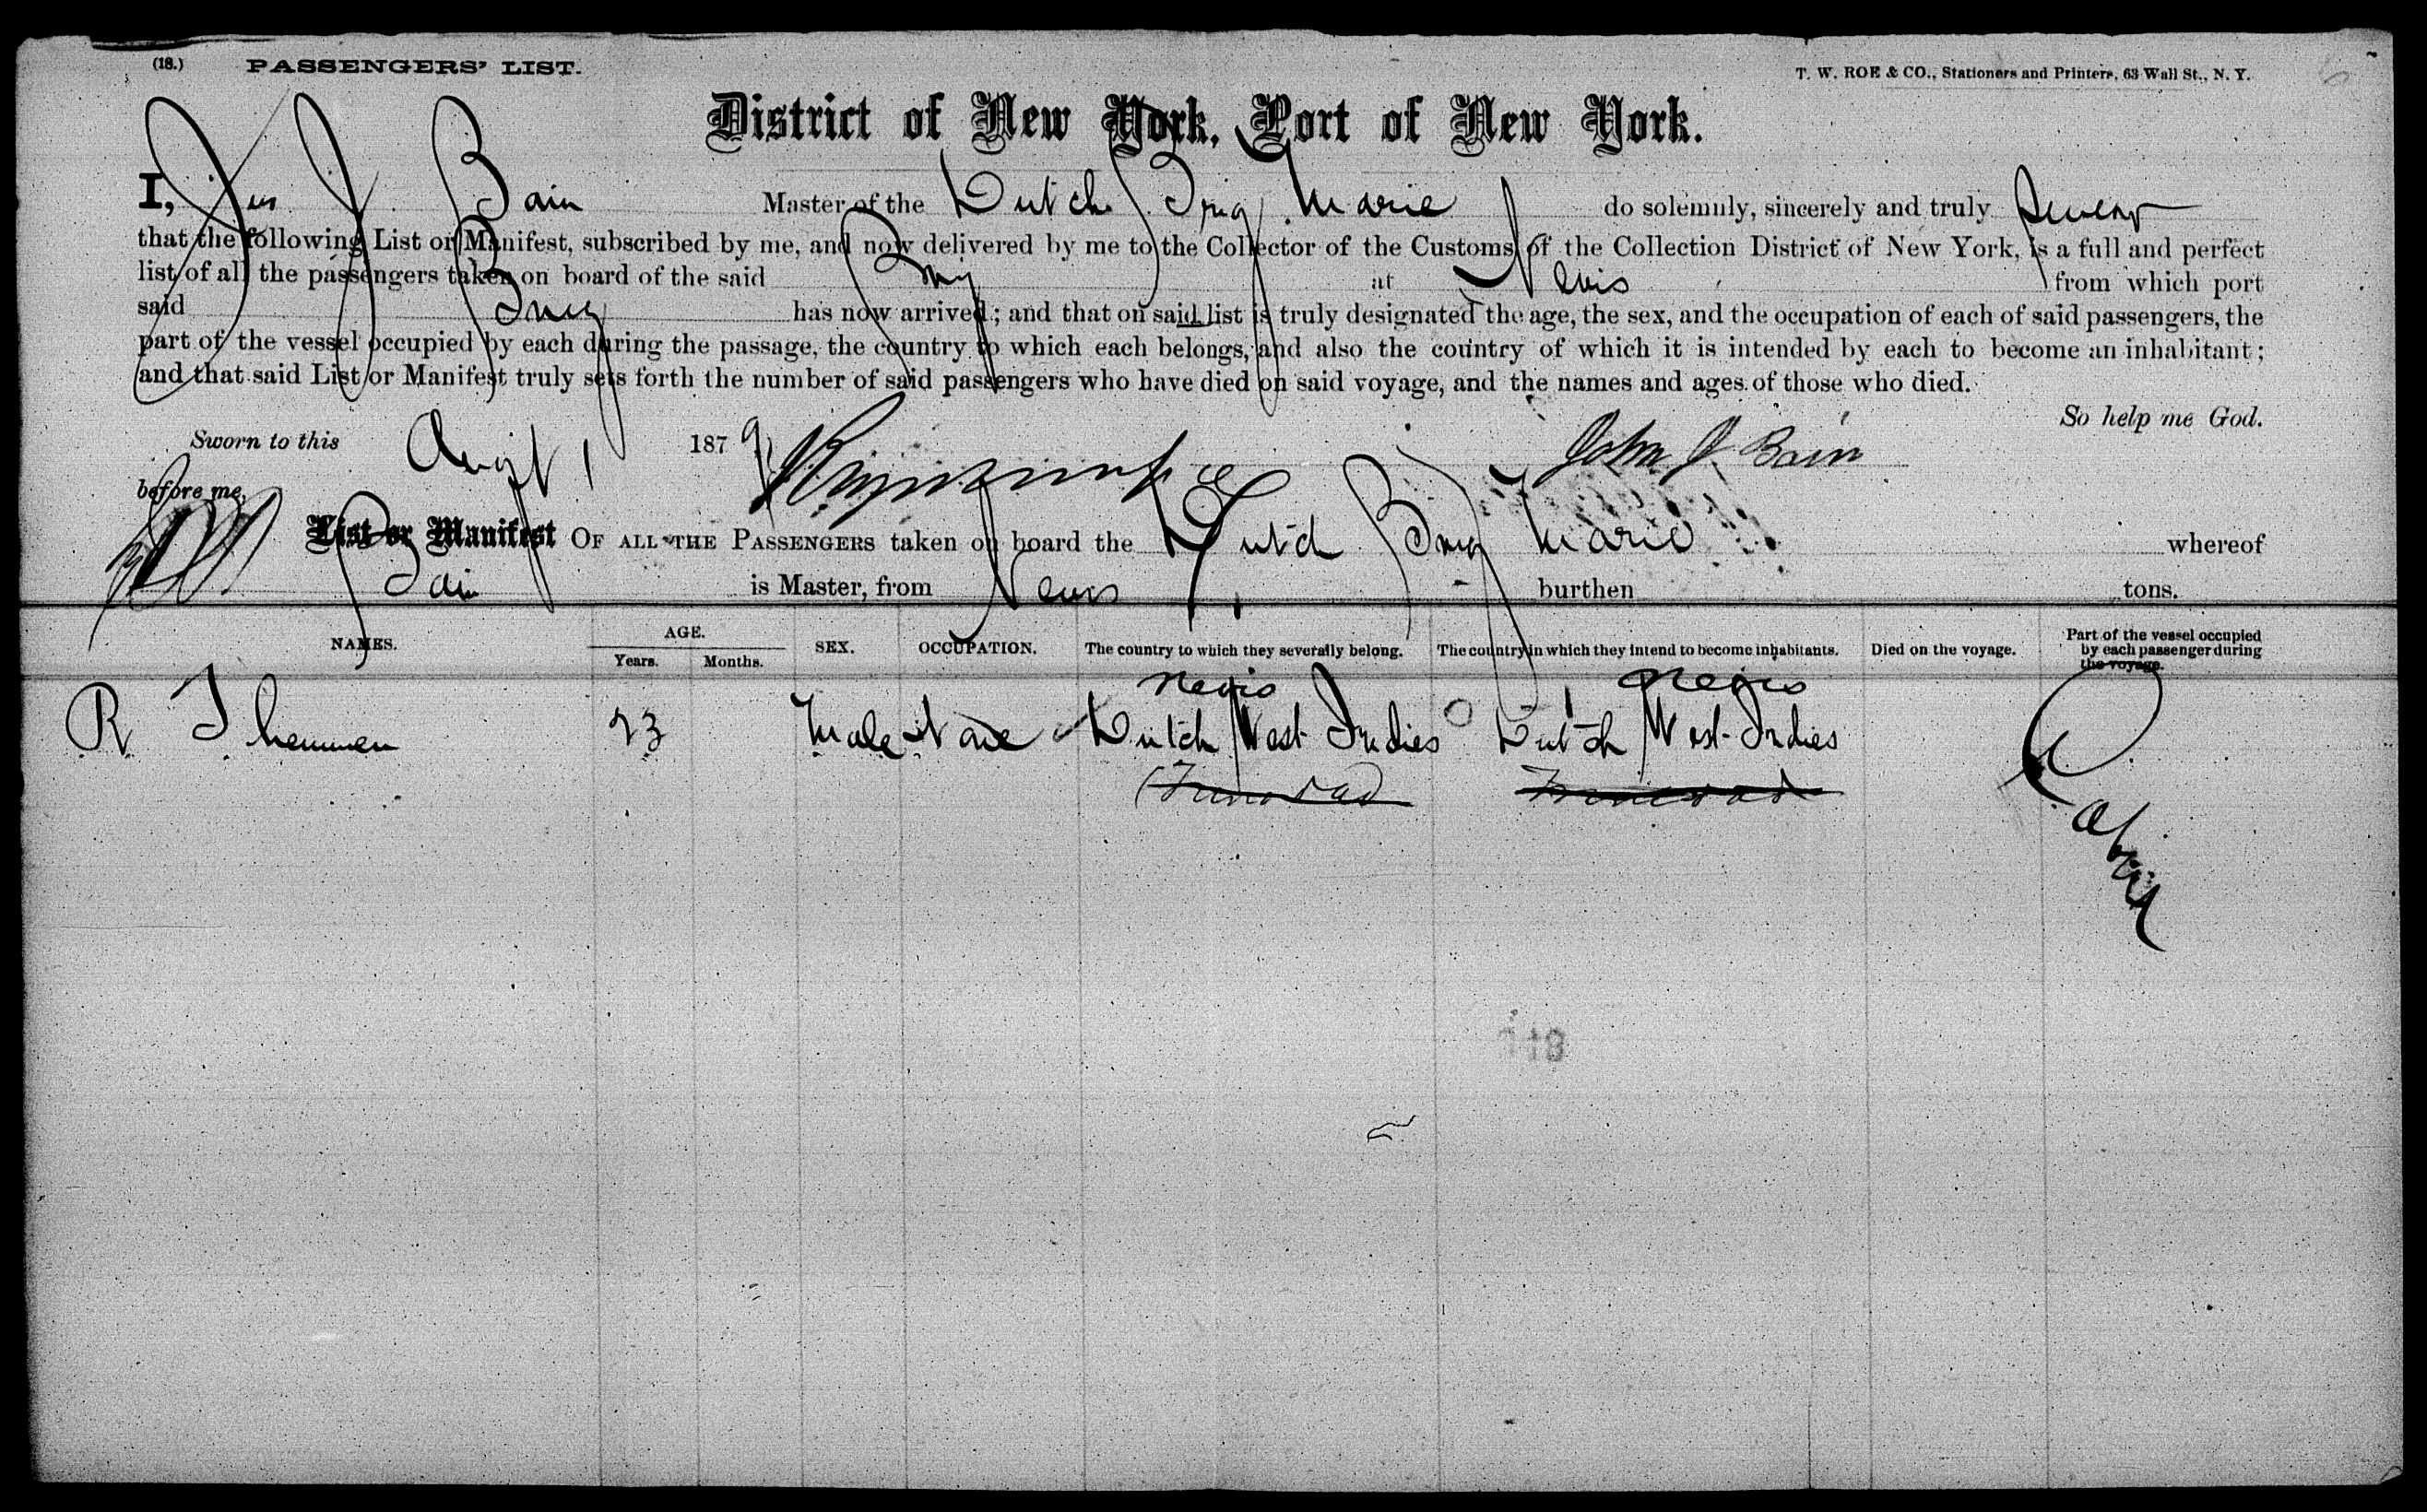 (18.) PASSENGERS' LIST.
T. W. ROE & CO., Stationers and Printers, 63 Wall St., N. Y.
District of New York, Port of New York.
I, Jno J Bain Master of the Dutch Brig Marie do solemnly, sincerely and truly Swear
that the following List or Manifest, subscribed by me, and now delivered by me to the Collector of the Customs of the Collection District of New York, is a full and perfect
list of all the passengers taken on board of the said Brig at Nevis from which port
said Brig has now arrived; and that on said list is truly designated the age, the sex, and the occupation of each of said passengers, the
part of the vessel occupied by each during the passage, the country to which each belongs, and also the country of which it is intended by each to become an inhabitant;
and that said List or Manifest truly sets forth the number of said passengers who have died on said voyage, and the names and ages of those who died.
So help me God.
Sworn to this Augst 1 1879 John J Bain
before me,
List or Manifest OF ALL THE PASSENGERS taken on board the Dutch Brig Marie whereof
Bain is Master, from Nevis burthen tons.
NAMES. AGE. Years. Months. SEX. OCCUPATION. The country to which they severally belong. The country in which they intend to become inhabitants. Died on the voyage. Part of the vessel occupied by each passenger during the voyage.
Nevis Nevis
R 23 Male None Dutch West Indies Dutch West Indies Cabin
Trinidad Trinidad